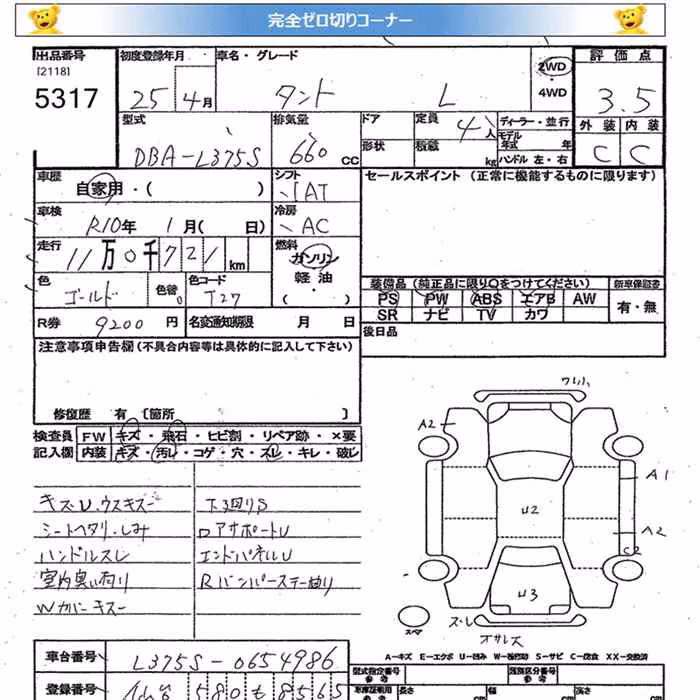 完全ゼロ切りコーナー
出品番号 初度登録年月 車名・グレード 2WD 評価点
[2118]
5317 25年 4月 タント L ・4WD 3.5
型式 排気量 ドア 定員 4人 ディーラー・並行 外装 内装
DBA-L375S 660cc 形状 積載 kg モデル年式 年 C C
ハンドル 左・右
車歴 シフト セールスポイント (正常に機能するものに限ります)
自家用・( ) IAT
車検 冷房
R10年 1月( 日) AC
走行 燃料
11万0千721km ガソリン
軽油
( )
色 色替 色コード 装備品 (純正品に限り○をつけてください) 新車保証書
ゴールド T27 PS PW ABS エアB AW 有・無
SR ナビ TV カワ
R券 9200円 名変通知期限 月 日 後日品
注意事項申告欄(不具合内容等は具体的に記入して下さい)
修復歴 有 [箇所 ]
検査員 FW キズ・飛石・ヒビ割・リペア跡・×要
記入欄 内装 キズ・汚れ・コゲ・穴・スレ・キレ・破レ
キズU,ウスキズー 下回りS
シートヘタリ・しみ ロアサポートU
ハンドルスレ エンドパネルU
室内臭い有り Rバンパーステー曲り
Wカバーキズー
ワレ
A2
A1
U2
A2
C2
U3
スペア スレ
オサレズ
A-キズ E-エクボ U-凹み W-補修跡 S-サビ C-腐食 XX-交換済
車台番号 L375S-0654986 型式指定番号 類別区分番号
参考 参考
登録番号 580 も 8565 長さ cm 幅 cm 高さ cm